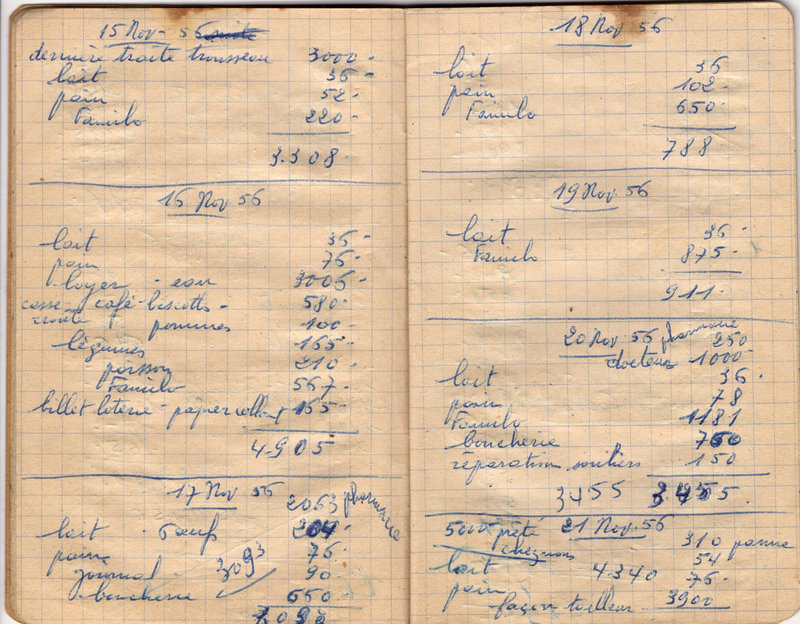 15 Nov - 56
dernière traite trousseau 3000 -
lait 36 -
pain 52 -
Familo 220 -
3.308 -
16 Nov 56
lait 36 -
pain 76 -
loyer - eau 3005 -
casse croûte café - biscotts - 580 -
pommes 100 -
légumes 165 -
poisson 210 -
Familo 567 -
billet loterie - papier collant 165 -
4.905 -
17 Nov 56
2063 pharmacie
lait - oeuf 204 -
pain 76 -
journal 90 -
3093
boucherie 660
18 Nov 56
lait 36
pain 102 -
Familo 650 -
788
19 Nov 56
lait 36 -
Familo 875 -
911 -
20 Nov 56 pharmacie 250
docteur 1000 -
lait 36 -
pain 78
Familo 1181
boucherie 760
réparation souliers 150
3455 3455
5000 prêté 21 Nov. 56
310 panne
lait 54
4.340
pain 76 -
façon tailleur 3900